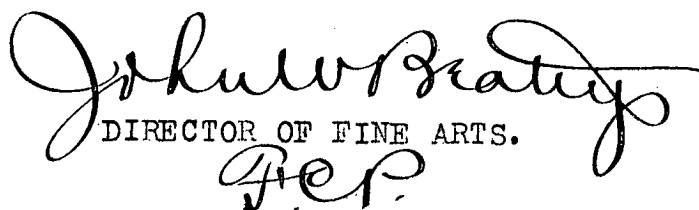 John W Beatty
DIRECTOR OF FINE ARTS.
F.C.P.